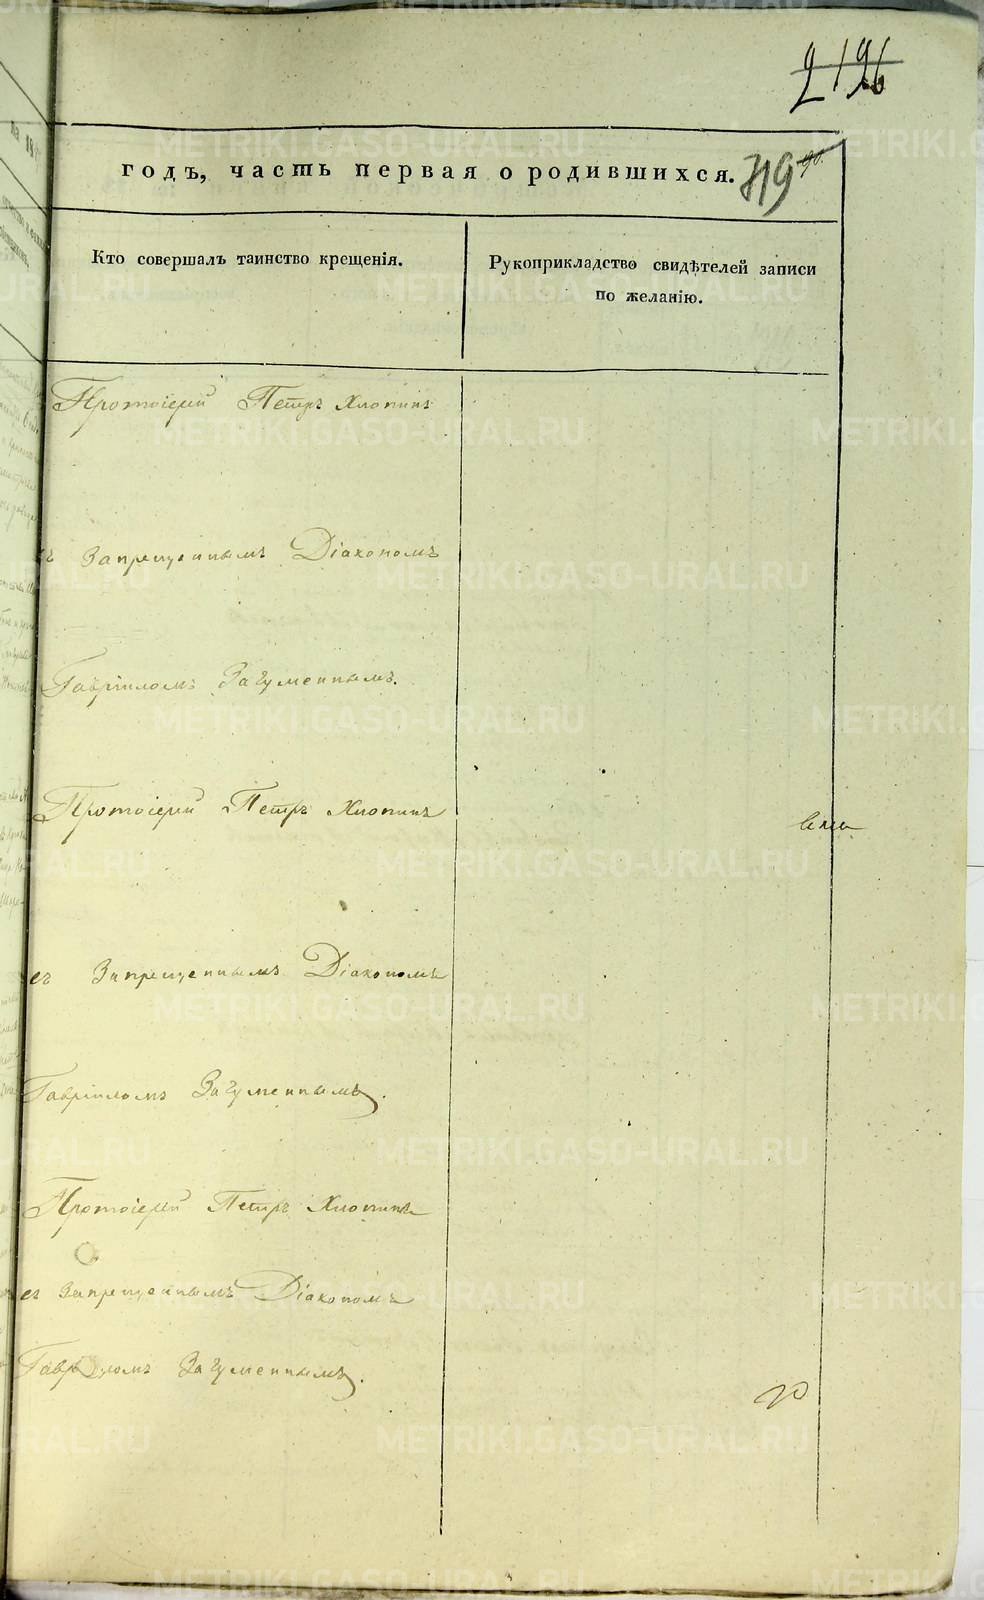 2196
годъ, часть первая о родившихся. 719
Кто совершалъ таинство крещенія.
Рукоприкладство свидѣтелей записи
по желанію.
Протоіерей Петръ Хлопинъ
съ Запрещеннымъ Діакономъ
Гавріиломъ Загуменнымъ.
Протоіерей Петръ Хлопинъ
съ Запрещеннымъ Діакономъ
Гавріиломъ Загуменнымъ.
Протоіерей Петръ Хлопинъ
съ Запрещеннымъ Діакономъ
Гавріиломъ Загуменнымъ.
METRIKI.GASO-URAL.RU